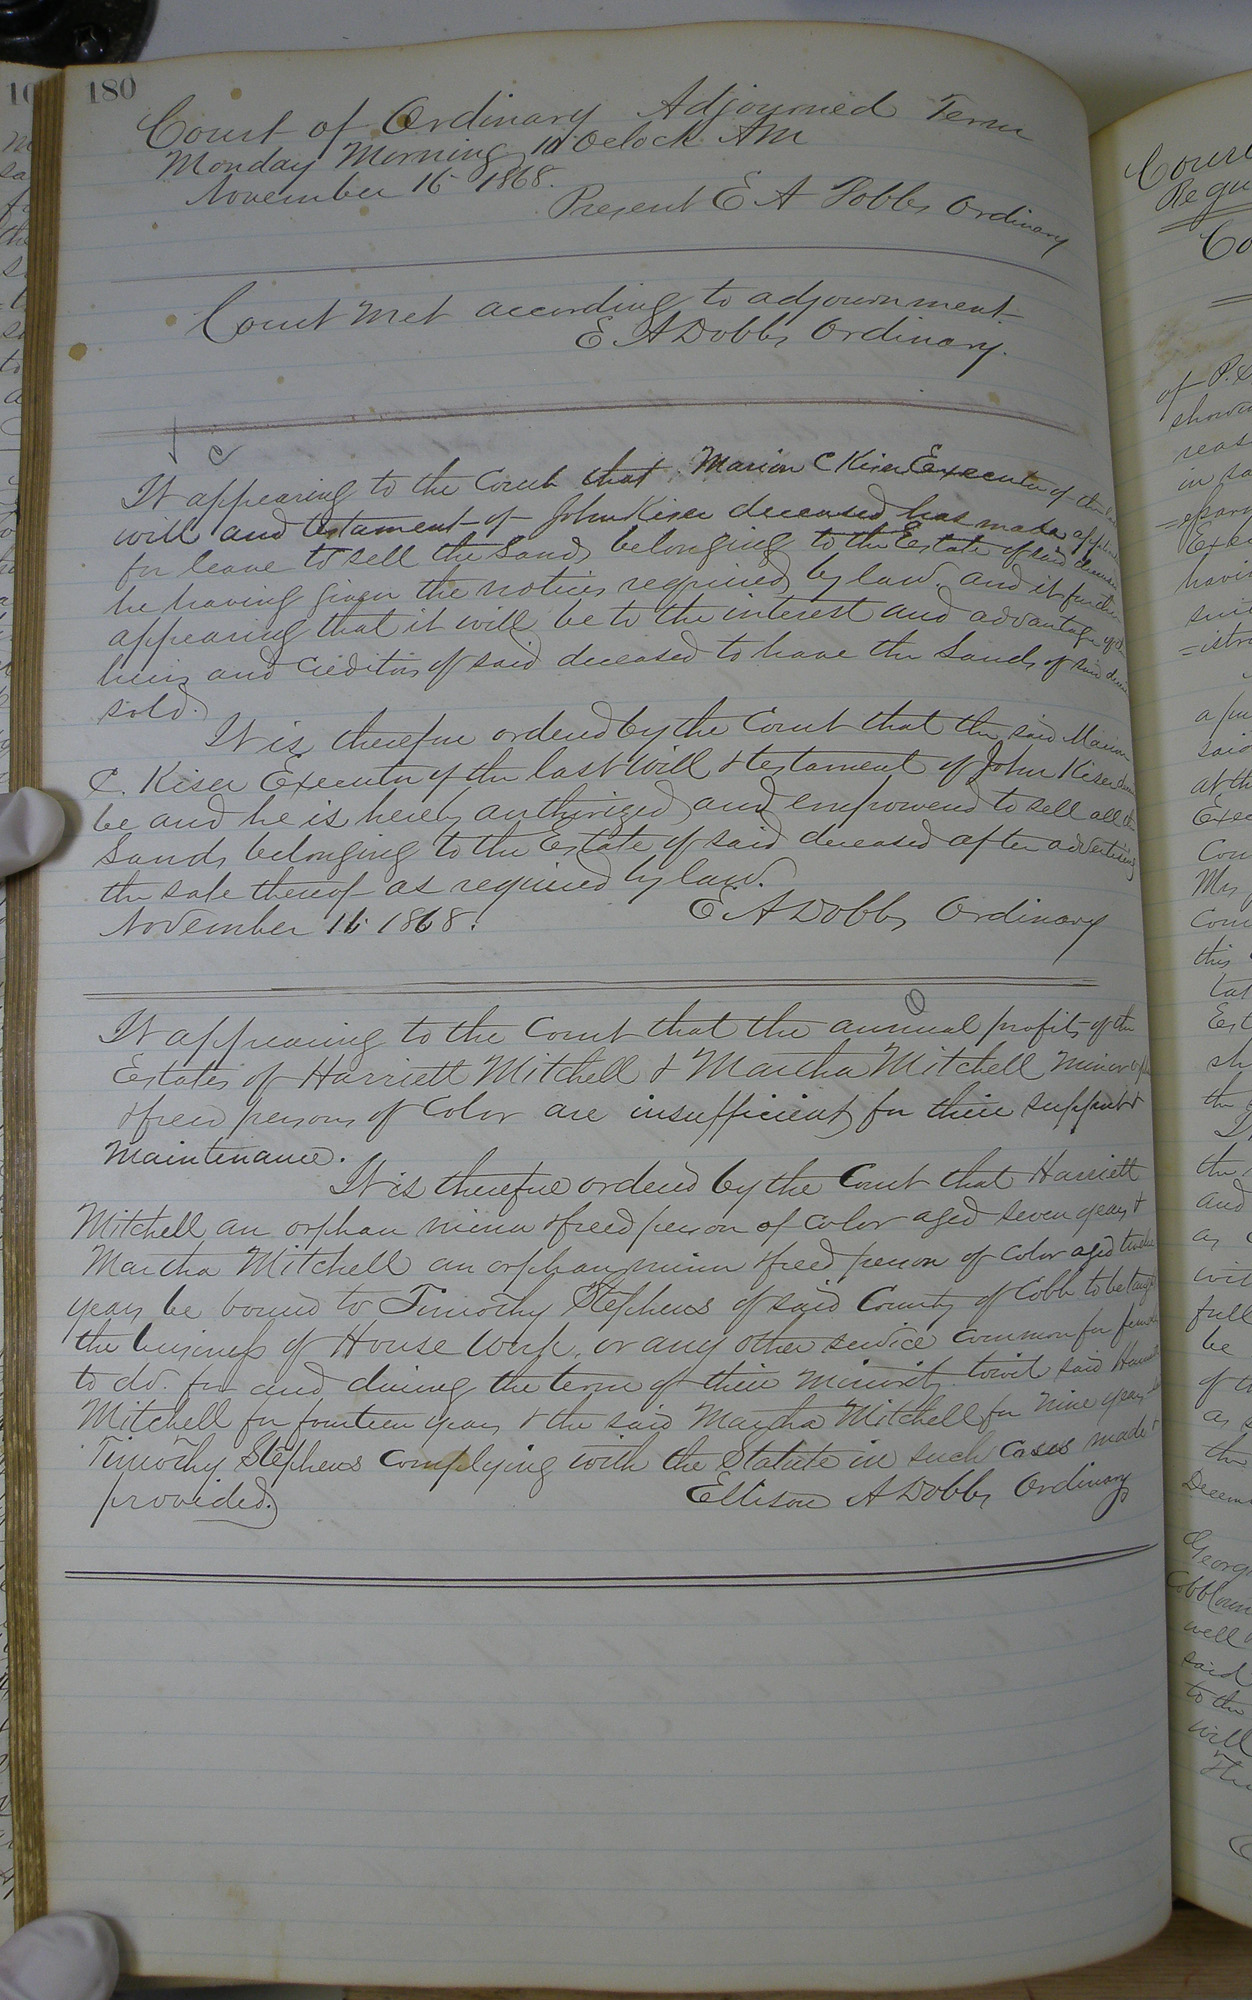 180
Court of Ordinary Adjourned Term
Monday Morning 10 Oclock AM
November 16 1868.
Present E A Dobbs Ordinary
Court Met according to adjournment.
E A Dobbs Ordinary.
It appearing to the Court that Marion C Kiser Executor of the last
will and testament of John Kiser deceased has made
for leave to sell the Lands belonging to the Estate of said deceased
he having given the notices required by law. and it further
appearing that it will be to the interest and advantage of
heirs and Creditors of said deceased to have the Lands of said
sold.
It is therefore ordered by the Court that the said Marion
C. Kiser Executor of the last Will & testament of John Kiser
be and he is hereby authorized and empowered to sell all the
Lands belonging to the Estate of said deceased after advertising
the sale thereof as required by law.
November 16 1868.
E. A Dobbs Ordinary
It appearing to the Court that the annual profits of the
Estates of Harriett Mitchell & Martha Mitchell minor
& freed persons of Color are insufficient for their support &
Maintenance.
It is therefore ordered by the Court that Harriett
Mitchell an orphan minor & freed person of Color aged seven years &
Martha Mitchell an orphan minor & freed person of Color aged twelve
years be bound to Timothy Stephens of said County of Cobb to be taught
the business of House Work, or any other service Common for females
to do. for and during the term of their Minority. towit said Harriett
Mitchell for fourteen years & the said Martha Mitchell for Nine years
Timothy Stephens Complying with the Statute in such Cases made &
provided.
Ellison A Dobbs Ordinary